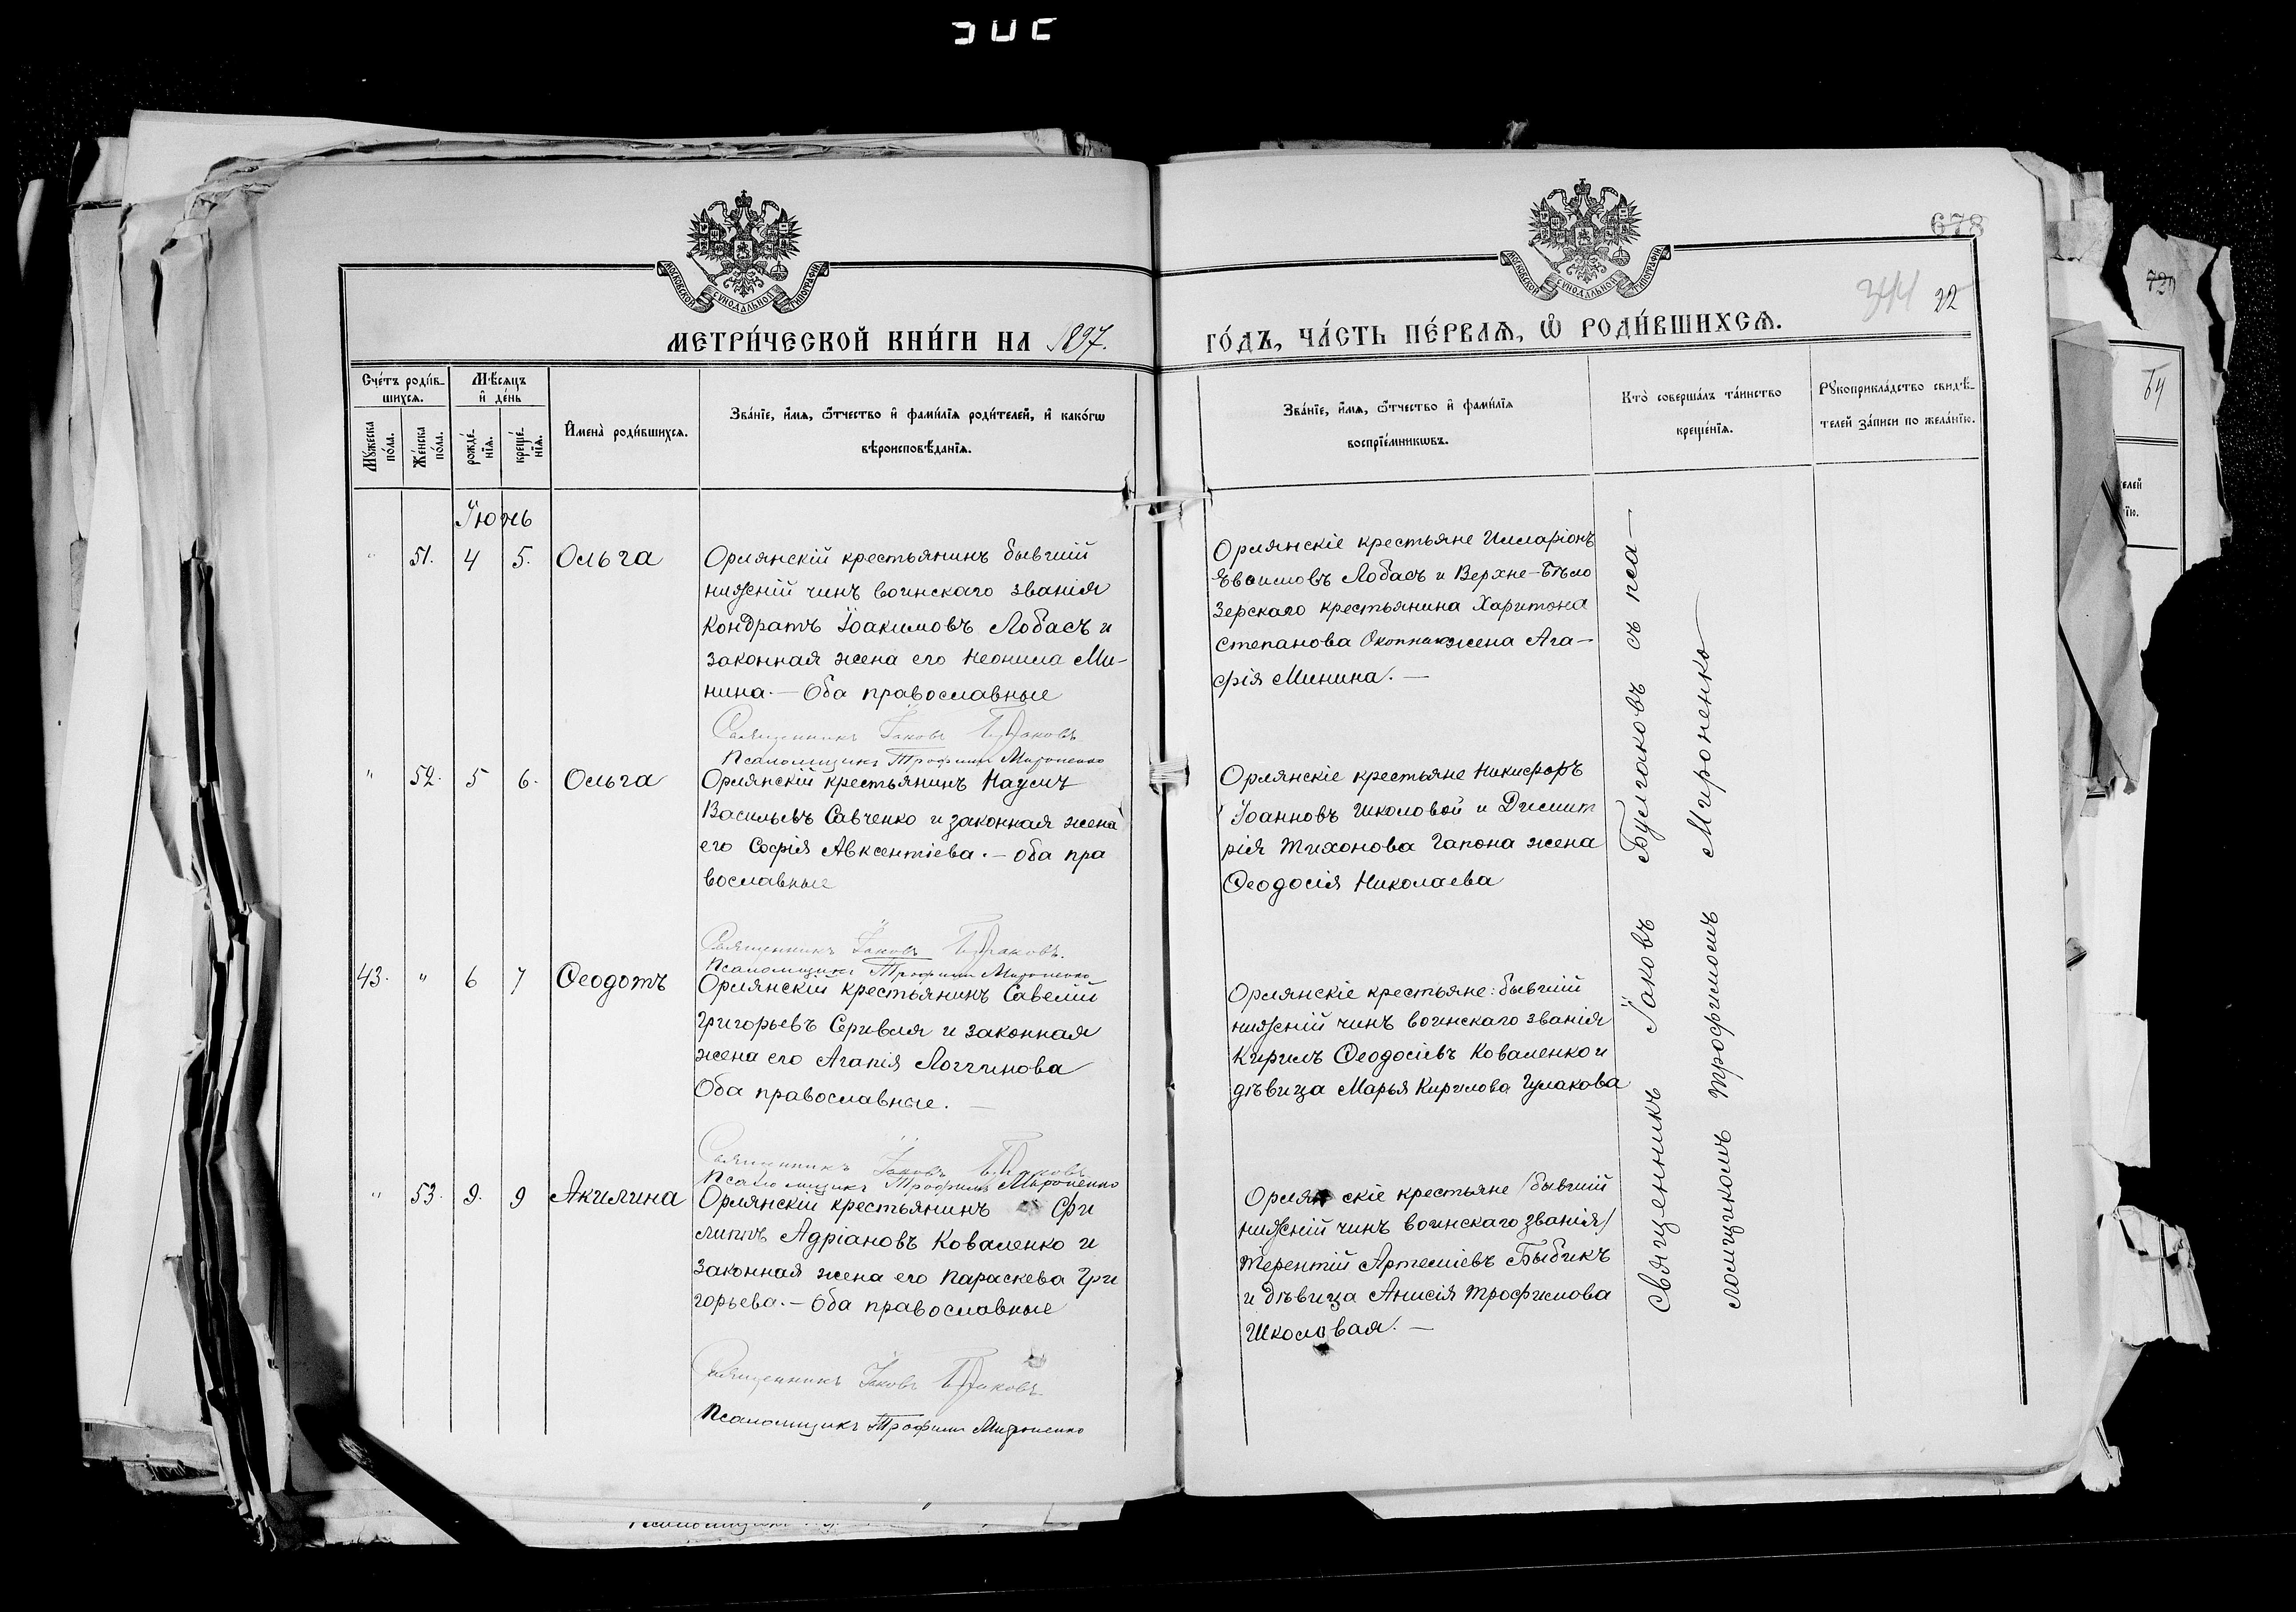 678
МОСКОВСКОЙ СѴНОДАЛЬНОЙ ТИПОГРАФІИ
МОСКОВСКОЙ СѴНОДАЛЬНОЙ ТИПОГРАФІИ
344 22
МЕТРИ́ЧЕСКОЙ КНИ́ГИ НА 1897.
ГО́ДЪ, ЧА́СТЬ ПЕ́РВАѦ, Ѡ҆ РОДИ́ВШИХСѦ.
Сче́тъ роди́в-
шихсѧ.
Мꙋ́жеска по́ла.
Же́нска по́ла.
Мѣ́сѧцъ и҆ де́нь
рожде́-
нїѧ.
креще́-
нїѧ.
И҆мена̀ роди́вшихсѧ.
Зва́нїе, и҆́мѧ, ѻ҆́тчество и҆ фамѝлїѧ роди́телей, и҆ како́гѡ
вѣроисповѣ́данїѧ.
Зва́нїе, и҆́мѧ, ѻ҆́тчество и҆ фамѝлїѧ
воспрїе́мникѡвъ.
Кто̀ соверша́лъ та́инство
креще́нїѧ.
Рꙋкоприкла́дство свидѣ́-
телей за́писи по жела́нїю.
Іюнь
" 51. 4 5. Ольга
Орлянскій крестьянинъ бывшій
нижній чинъ воинскаго званія
Кондратъ Іоакимовъ Лобасъ и
законная жена его Неонила Ми-
нина. — Оба православные
Священникъ Іаковъ Булгаковъ
Псаломщикъ Трофимъ Мироненко
Орлянскіе крестьяне Илларіонъ
Евѳимовъ Лобасъ и Верхне-Бѣло
зерскаго крестьянина Харитона
Степанова жена Ага-
фія Минина. —
" 52. 5 6. Ольга
Орлянскій крестьянинъ Наумъ
Васильевъ Савченко и законная жена
его Софія Авксентіева. — Оба пра
вославные
Священникъ Іаковъ Булгаковъ.
Псаломщикъ Трофимъ Мироненко
Орлянскіе крестьяне Никифоръ
Іоанновъ Школовой и Димит
рія Тихонова Гапона жена
Ѳеодосія Николаева
43. " 6 7 Ѳеодотъ
Орлянскій крестьянинъ Савелій
Григорьевъ Серивля и законная
жена его Агапія Логгинова
Оба православные. —
Священникъ Іаковъ Булгаковъ
Псаломщикъ Трофимъ Мироненко
Орлянскіе крестьяне: бывшій
нижній чинъ воинскаго званія
Кирилъ Ѳеодосіевъ Коваленко и
дѣвица Марья Кирилова Гулакова
" 53. 9. 9 Акилина
Орлянскій крестьянинъ Фи
липпъ Адріановъ Коваленко и
законная жена его Параскева Гри
горьева. — Оба православные
Священникъ Іаковъ Булгаковъ
Псаломщикъ Трофимъ Мироненко
Орлянскіе крестьяне /бывшій
нижній чинъ воинскаго званія/
Терентій Артеміевъ Быбикъ
и дѣвица Анисія Трофимова
Школовая. —
Священникъ Іаковъ Булгаковъ съ пса-
ломщикомъ Трофимомъ Мироненко